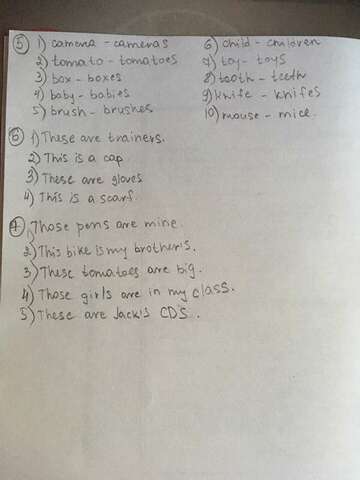 5) 1) camera - cameras 6) child - children
2) tomato - tomatoes 7) toy - toys
3) box - boxes 8) tooth - teeth
4) baby - babies 9) knife - knifes
5) brush - brushes 10) mouse - mice.
6) 1) These are trainers.
2) This is a cap
3) These are gloves
4) This is a scarf.
7) 1) Those pens are mine.
2) This bike is my brother's.
3) These tomatoes are big.
4) Those girls are in my class.
5) These are Jack's CD's.